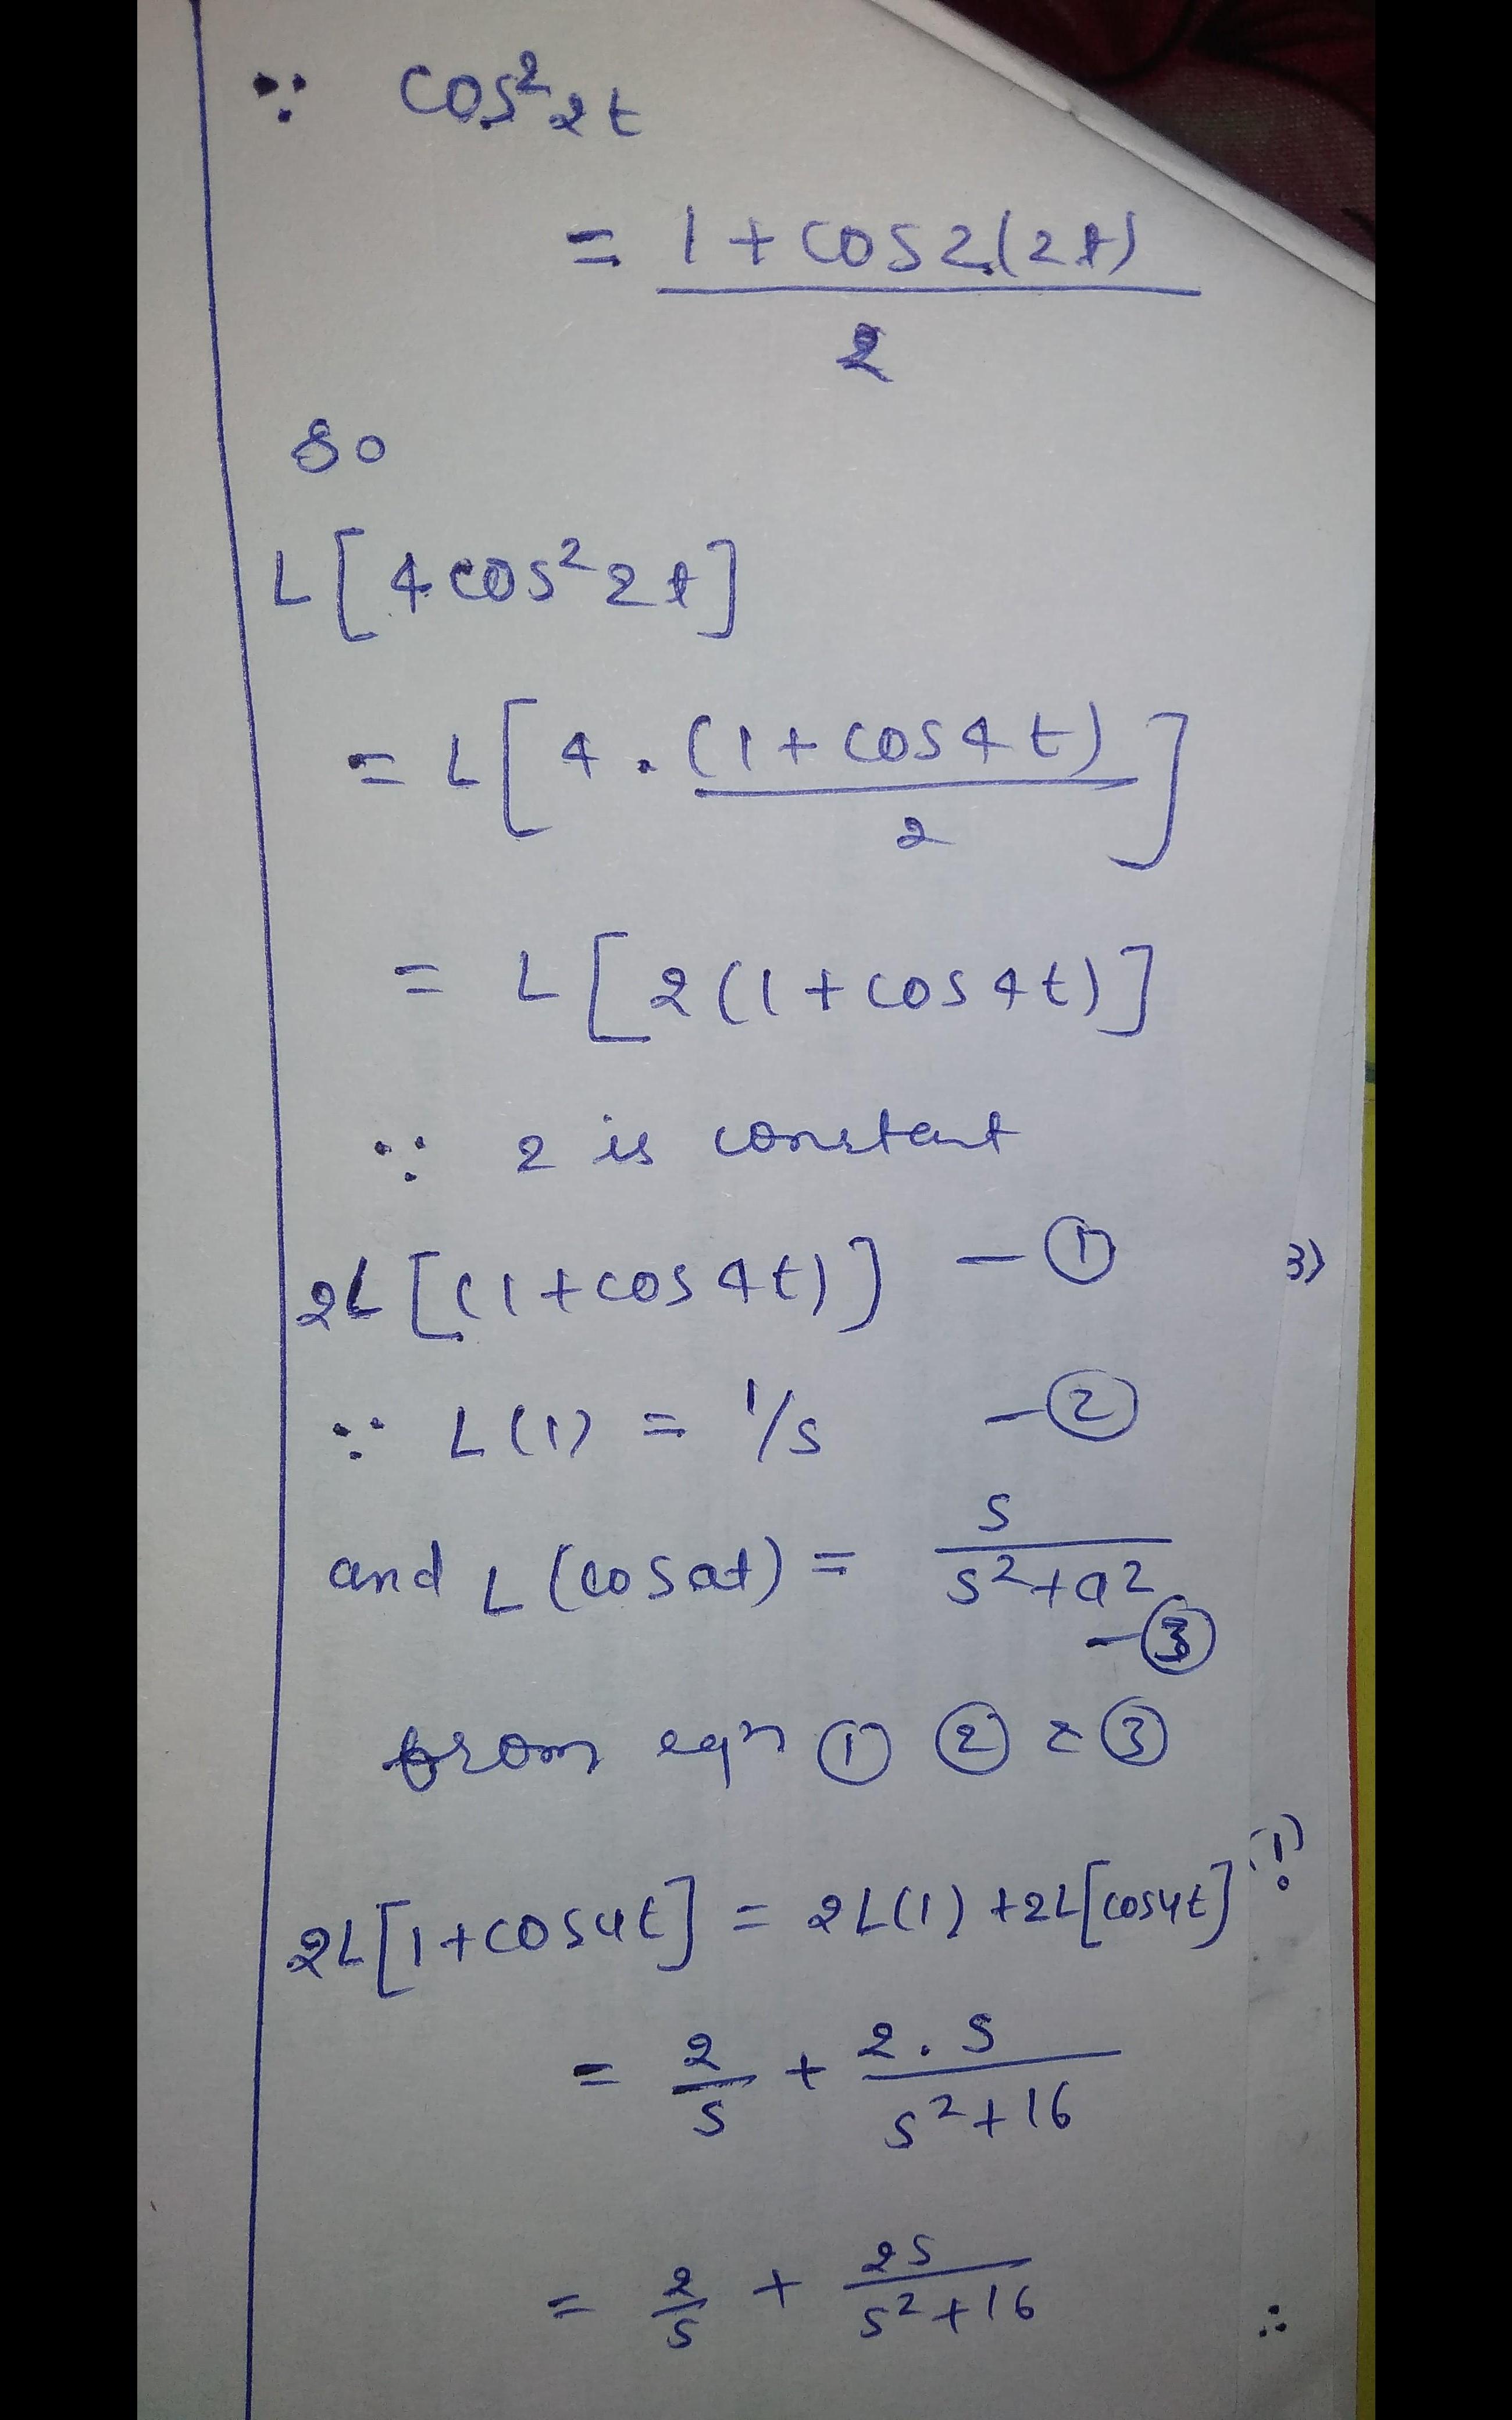 ∵ cos²2t
= 1 + cos2(2t)
2
So
L[4cos²2t]
= L[4.(1+cos4t)
2]
= L[2(1+cos4t)]
∵ 2 is constant
2L[(1+cos4t)] - ①
3)
∵ L(1) = 1/s - ②
and L(cosat) = s
s²+a²
- ③
from eqn ① ② & ③
2L[1+cos4t] = 2L(1) +2L[cos4t]
= 2/s + 2.s
s²+16
= 2/s + 2s
s²+16
∴